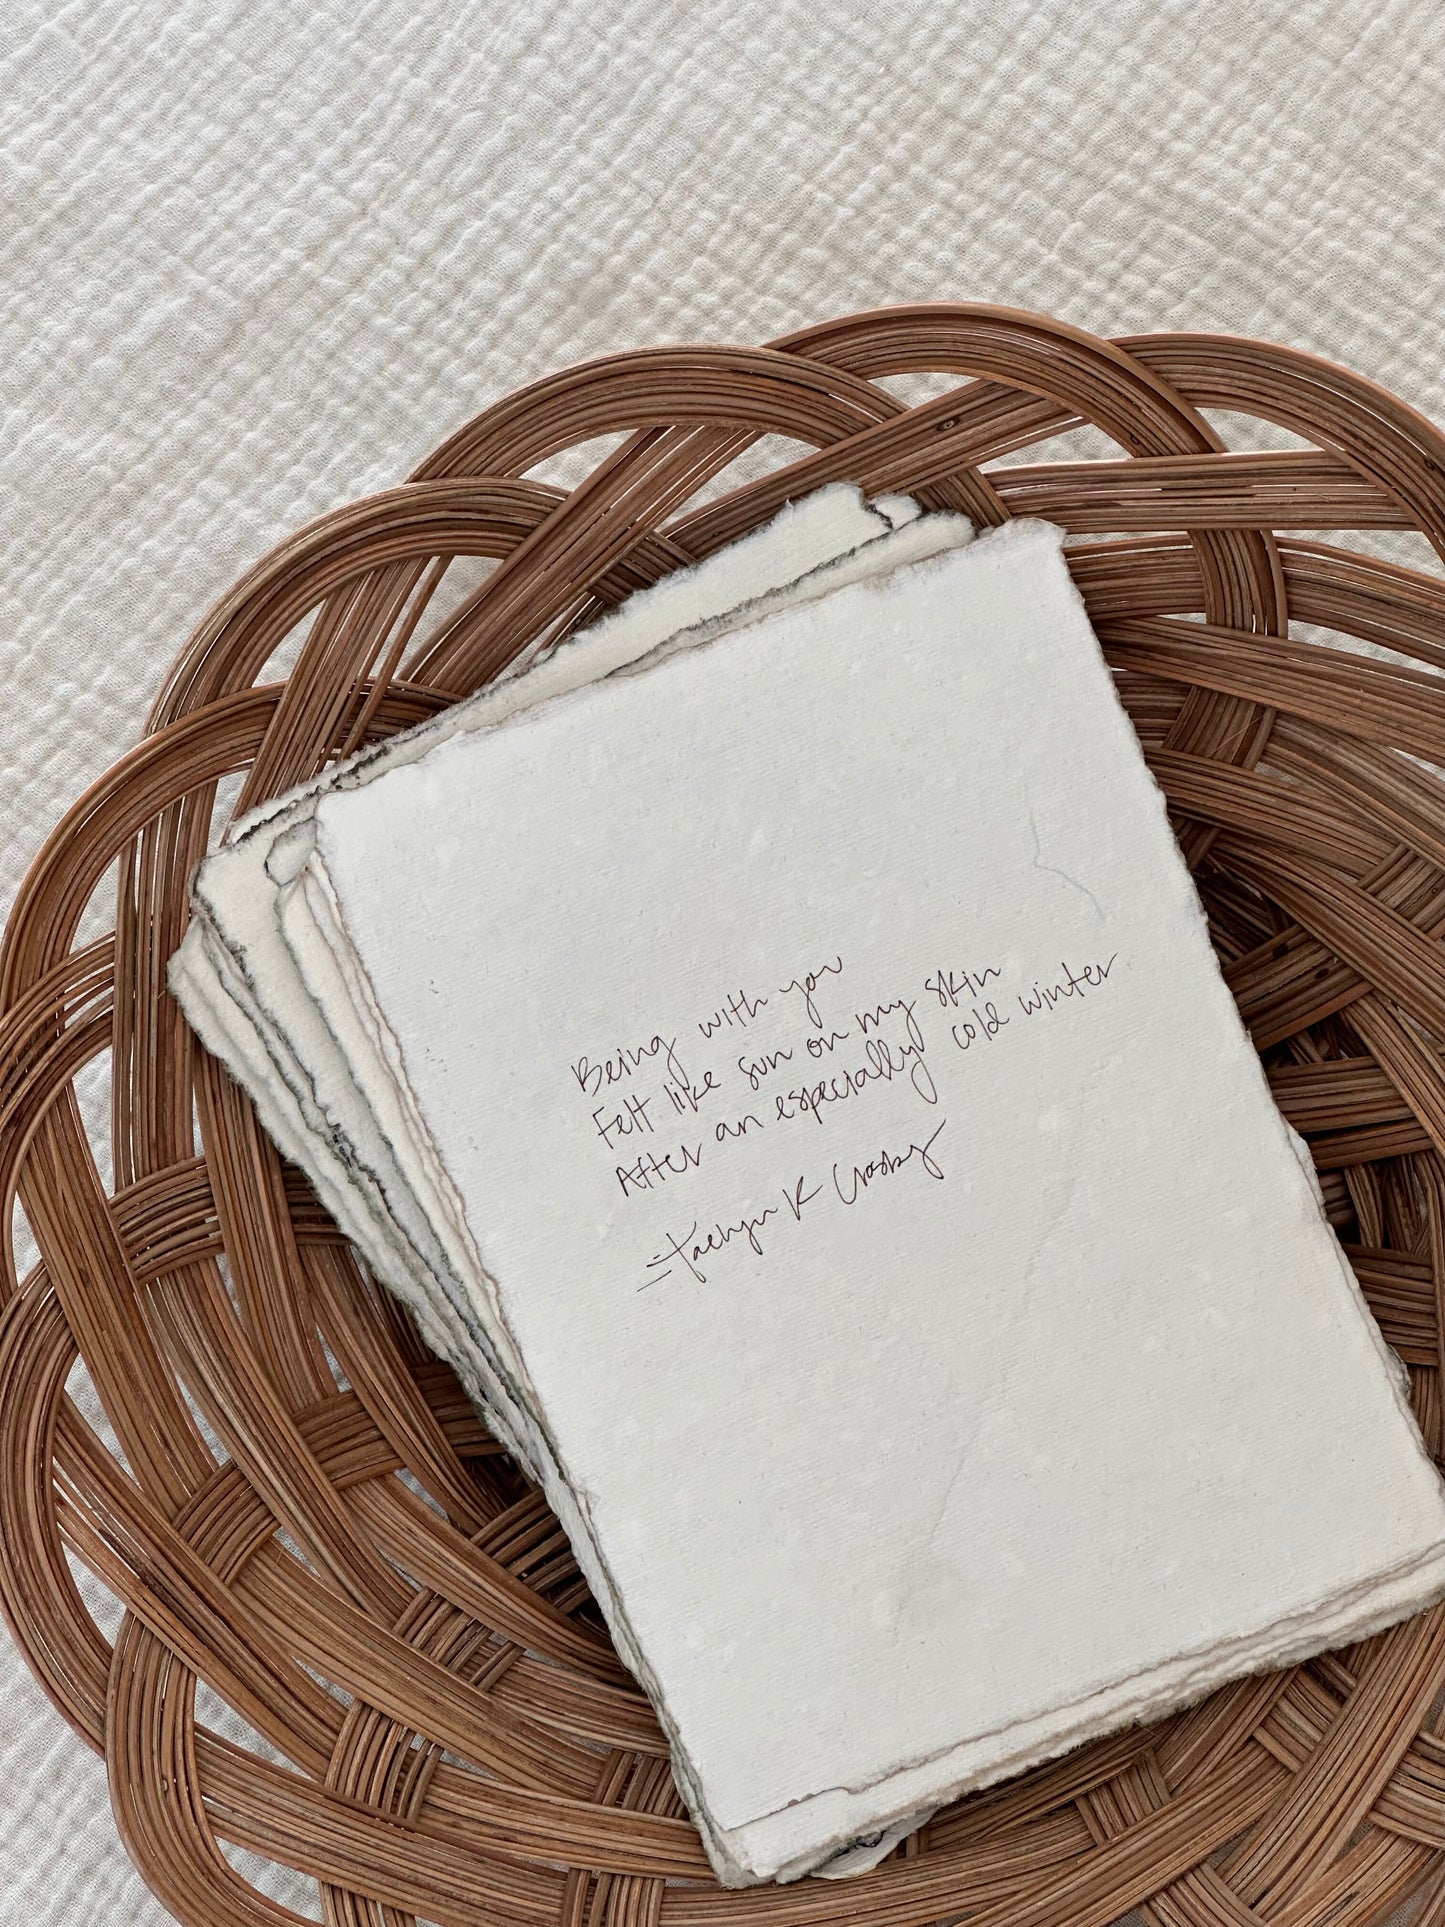 Being with you
Felt like sun on my skin
After an especially cold winter
- Taelyn K Crosby